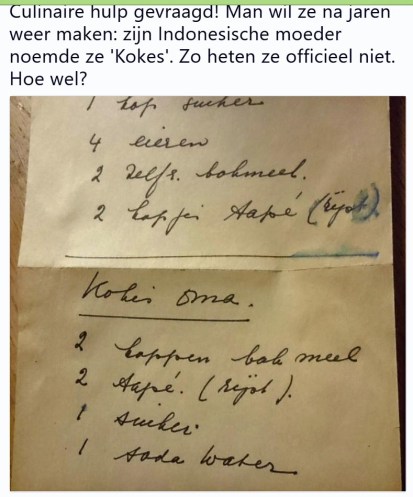 Culinaire hulp gevraagd! Man wil ze na jaren
weer maken: zijn Indonesische moeder
noemde ze 'Kokes'. Zo heten ze officieel niet.
Hoe wel?
1 kop suiker
4 eieren
2 Zelfr. bakmeel.
2 kopje Aapé (rijst)
Kokis oma.
2 koppen bak meel
2 Aapé. (rijst).
1 suiker
1 soda water